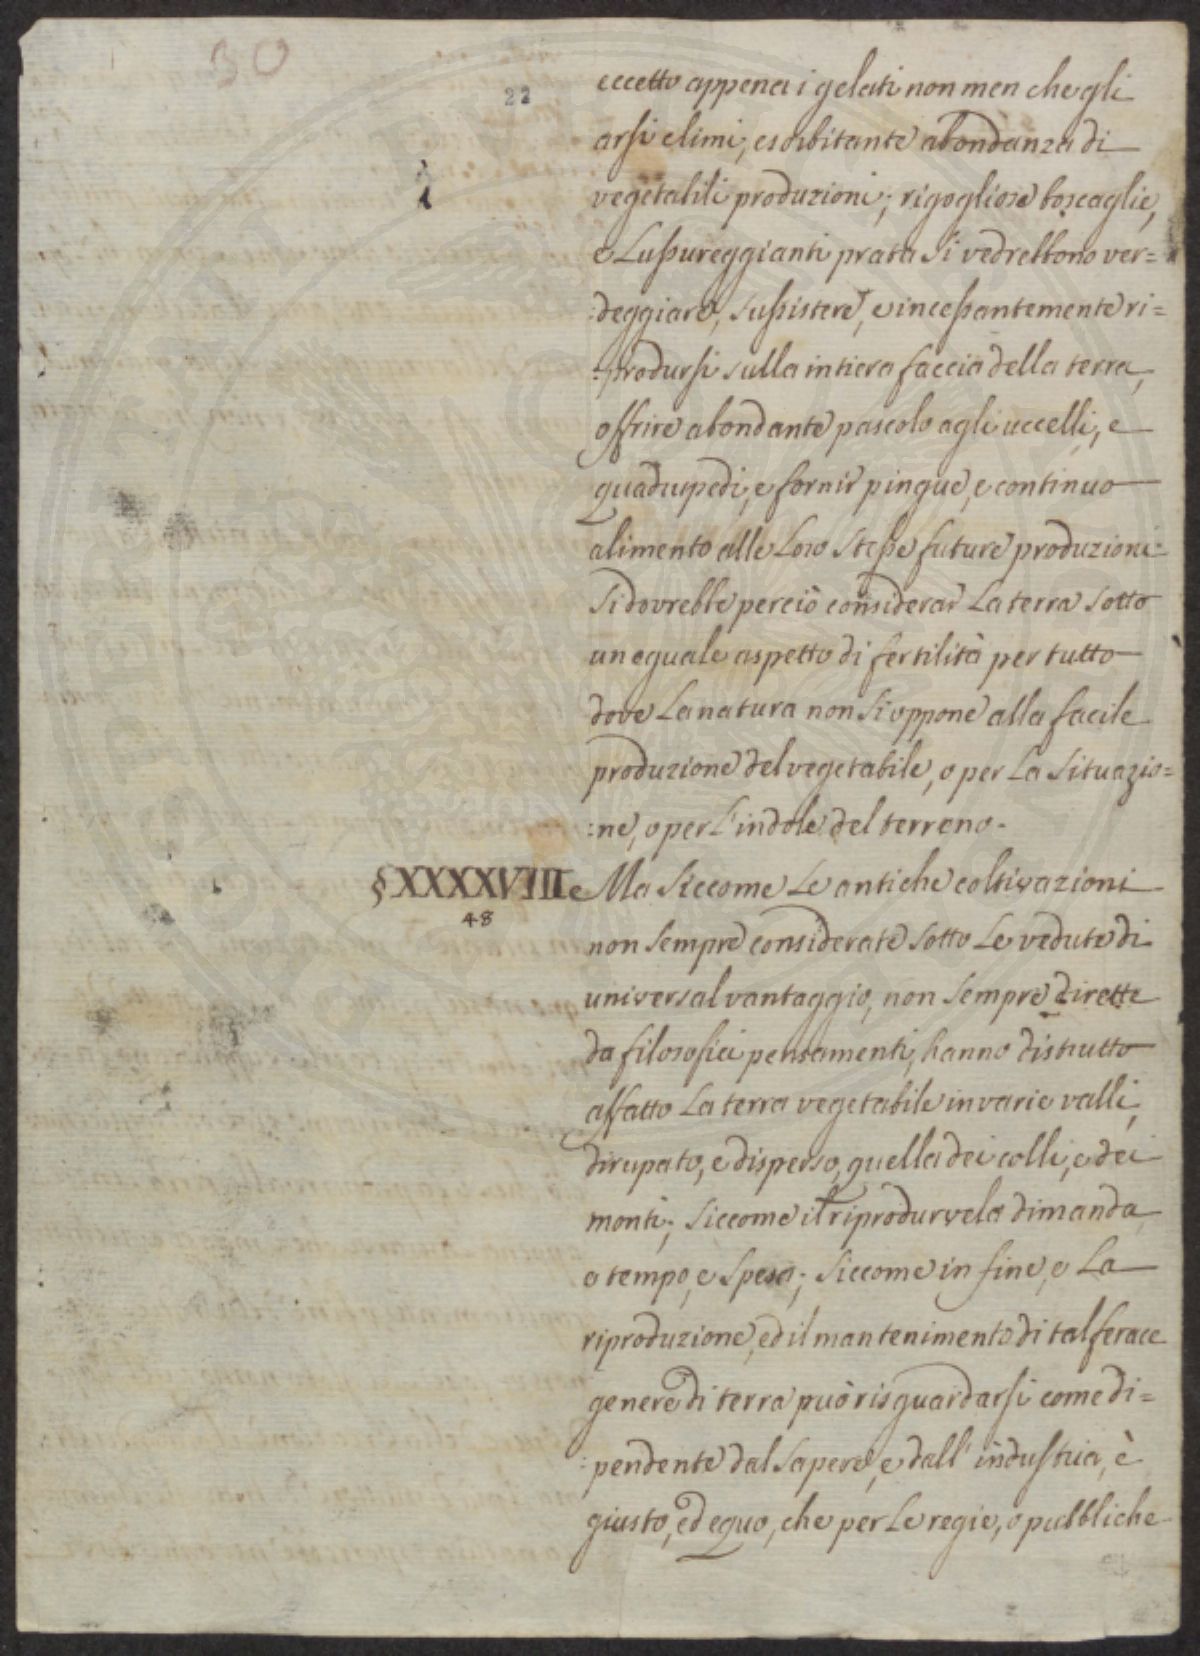 30
22
eccetto appena i gelati non men che gli
arsi climi, esorbitante abondanza di
vegetabili produzioni; rigogliose boscaglie,
e Lussureggianti prata Si vedrebbono ver=
:deggiare, sussistere, e incessantemente ri=
:prodursi sulla intiera faccia della terra,
offrire abondante pascolo agli uccelli, e
quadrupedi, e fornir pingue, e continuo
alimento alle Loro Stesse future produzioni:
Si dovrebbe perciò considerar La terra Sotto
un eguale aspetto di fertilità per tutto
dove La natura non Si oppone alla facile
produzione del vegetabile, o per La Situazio=
:ne, o per L'indole del terreno.
§ XXXXVIII e Ma Siccome Le antiche coltivazioni
48
non Sempre considerate Sotto Le vedute di
universal vantaggio, non Sempre dirette
da filosofici pensamenti, hanno distrutto
affatto La terra vegetabile in varie valli,
dirupato, e disperso, quella dei colli, e dei
monti; Siccome il riprodurvela dimanda
e tempo, e Spesa; Siccome in fine, e La
riproduzione, ed il mantenimento di tal ferace
genere di terra può risguardarsi come di=
:pendente dal Sapere, e dall' industria, è
giusto, ed equo, che per Le regie, o pubbliche